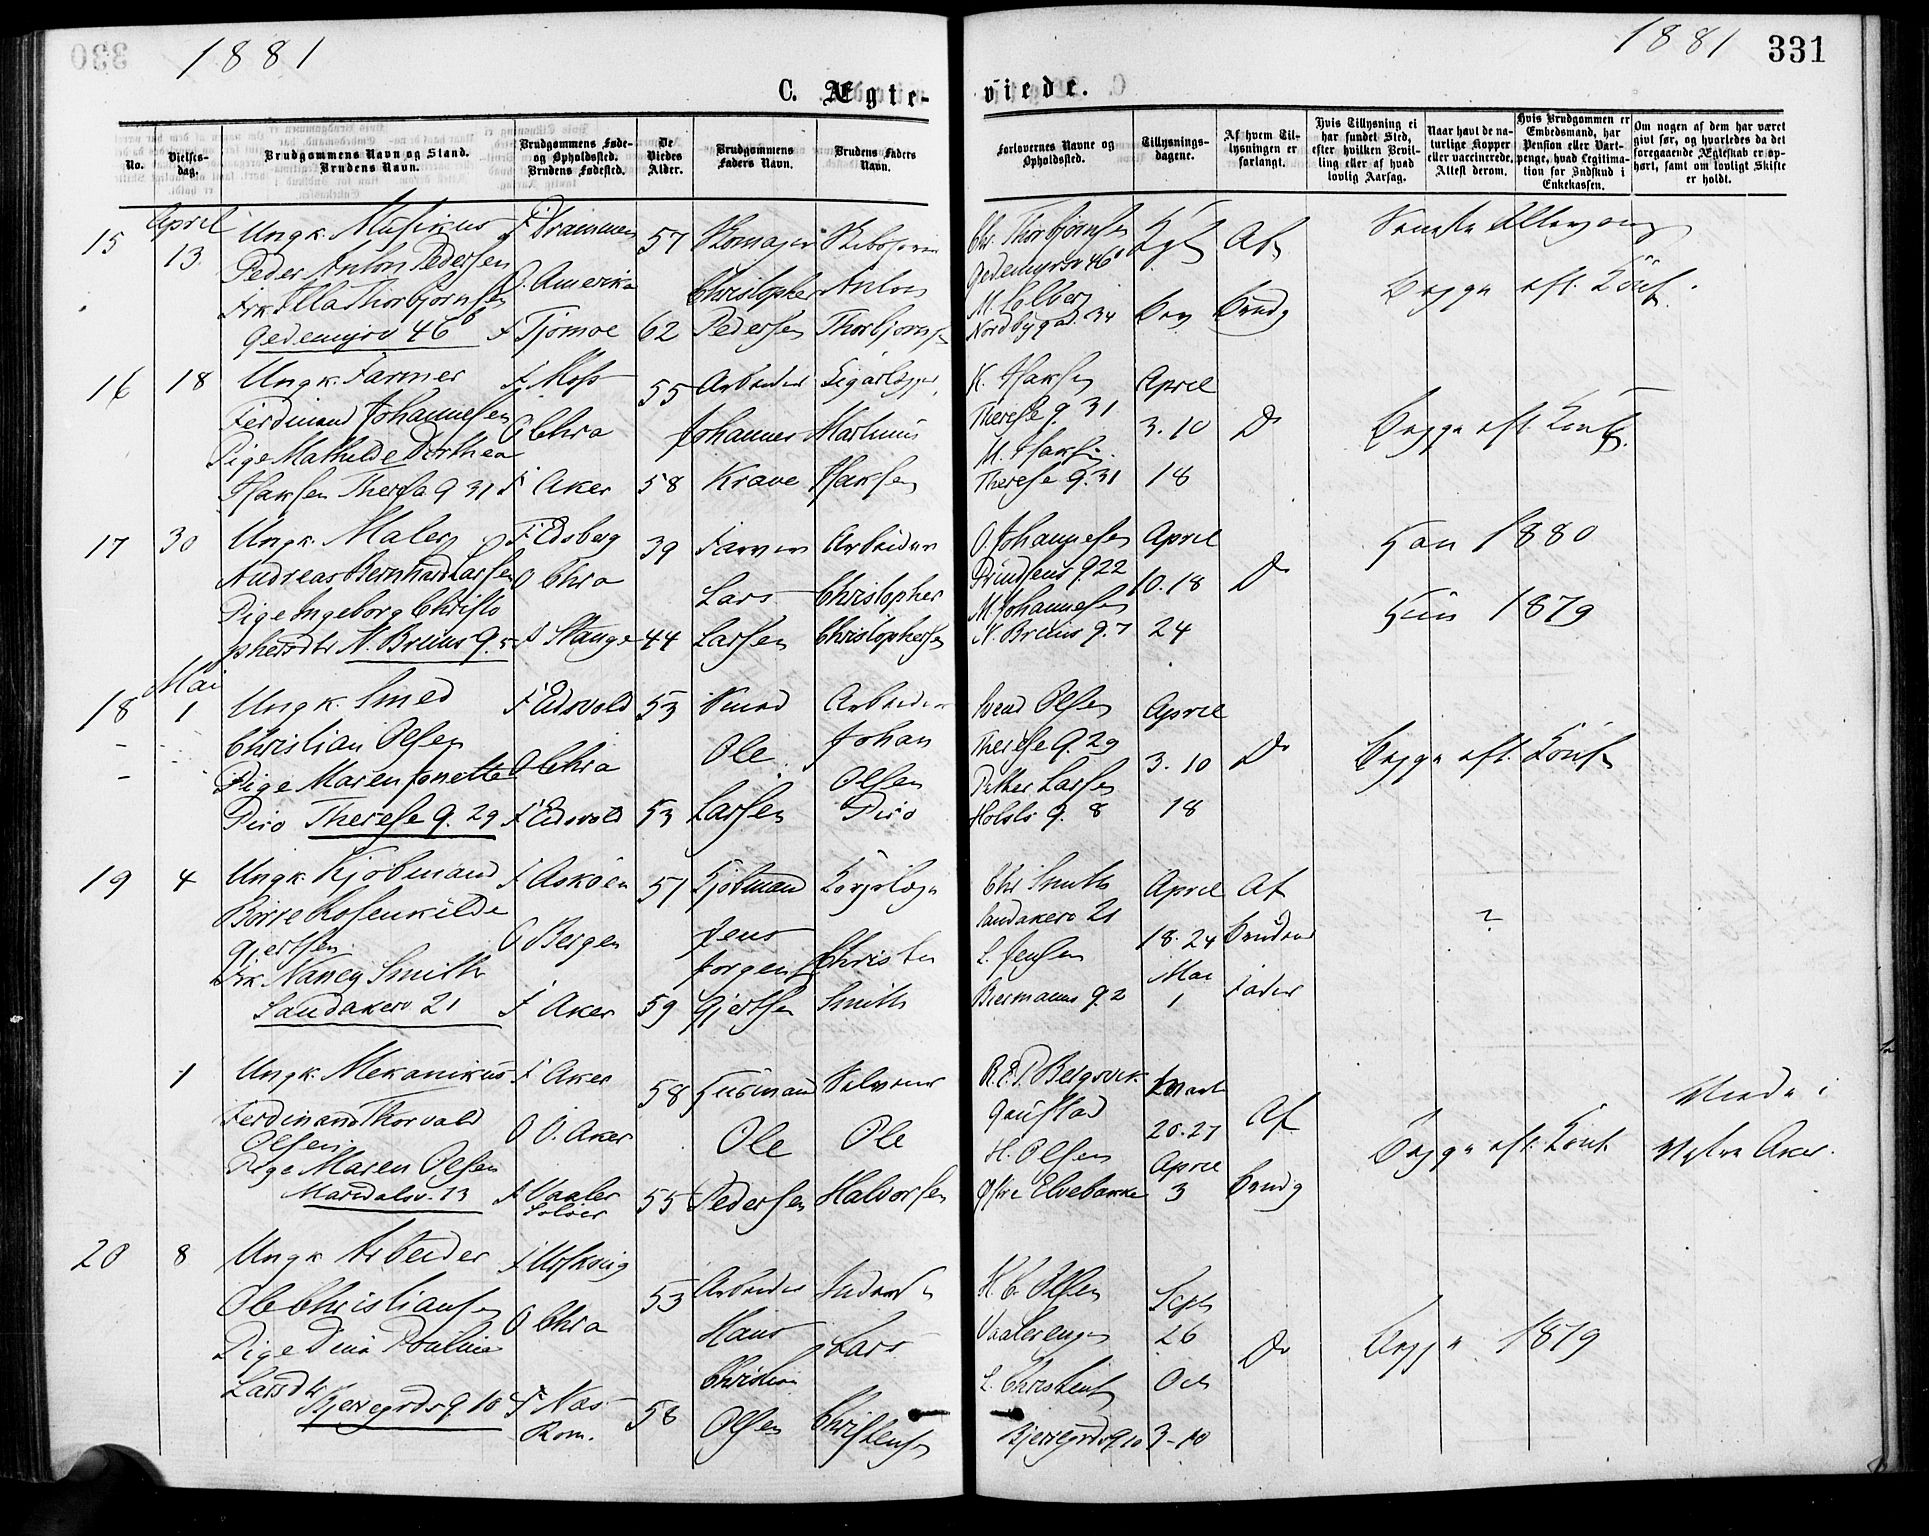 1881
1881
331
C. Ægte-
viede.
No.
Vielses-
dag.
Brudgommens Navn og Stand.
Brudens Navn.
Brudgommens Føde-
og Opholdssted.
Brudens Fødested.
De
Viedes
Alder.
Brudgommens
Faders Navn.
Brudens Faders
Navn.
Forlovernes Navne og
Opholdssted.
Tillysnings-
dagene.
Af hvem Til-
lysningen er
forlangt.
Hvis Tillysning ei
har fundet Sted,
efter hvilken Bevil-
ling eller af hvad
lovlig Aarsag.
Naar havt de na-
turlige Kopper
eller vaccinerede,
Attest derom.
Hvis Brudgommen er
Embedsmand, har
Pension eller Vart-
penge, hvad Legitima-
tion for Indskud i
Enkekassen.
Om nogen af dem har været
gift før, og hvorledes da det
foregaaende Ægteskab er op-
hørt, samt om lovligt Skifte
er holdt.
15
April
13
Ungk. Musikus
Peder Anton Pedersen
Frk. Ella Thorbjørnsen
Gedemyrsv 46 b
F Drammen
O. Amerika
F Tjømøe
57
62
Christopher
Pedersen
Anton
Thorbjørnsen
Chr. Thorbjørnsen
Gedemyrsv 46 b
M. Solberg
Nordbygad. 34
Af
Brudg
Begge eft. Conf.
16
18
Ungk. Farmer
Ferdinand Johannesen
Pige Mathilde Dorthea
Isaksen Therese g 31
F. Moss
O Chra
F Aker
55
58
Arbeider
Johannes
Krave
Martinus
Isaksen
K. Isaksen
Therese g. 31
M. Isaksen
Therese g. 31
April
3. 10
18
Do
Begge eft. Conf.
17
30
Ungk. Maler
Andreas Bernhard Larsen
Pige Ingeborg Christo
phersdtr N. Bruns g. 7
F Edsberg
O Chra
F Stange
39
44
Farver
Lars
Larsen
Arbeider
Christopher
Christophersen
O. Johannesen
Prindsens g. 22
M. Johannesen
N. Bruns g. 7
April
10. 18
24
Do
Han 1880
Hun 1879
18
Mai
1
Ungk. Smed
Christian Olsen
Pige Maren Jonette
Piro Therese g. 29
F Eidsvold
O Chra
F Eidsvold
53
53
Smed
Ole
Larsen
Arbeider
Johan
Olsen
Piro
Svend Olsen
Therese g. 29
Petter Larsen
Holsts g. 8
April
3. 10
18
Do
Begge eft. Conf
19
4
Ungk. Kjøbmand
Børre Rosenkilde
Gjertsen
Frk. Nancy Smith
Sandakerv 21
F Askøen
O Bergen
F Aker
57
59
Kjøbmand
Jens
Jørgen
Gjertsen
Christen
Smith
Chr Smith
Sandakerv 21
L. Jensen
Biermanns g. 2
April
18. 24
Mai
1
Af
Brudens
Fader
?
1
Ungk. Mekanikus
Ferdinand Thorvald
Olsen
Pige Maren Olsen
Maridalsv. 13
F Aker
O V. Aker
F Vaaler
Soløer
58
55
Husmand
Ole
Pedersen
Selveier
Ole
Halvorsen
R. E. P. Bergsvik
Gaustad
H. Olsen
Østre Elvebakke
Marts
20. 27
April
3
Af
Brudg
Begge eft. Conf
Viede i
Vestre Aker.
20
8
Ungk Arbeider
Ole Christiansen
Pige Dina Pouline
Larsdtr
Bjerregrds g. 10
O Chra
F Næs
Rom.
53
58
Arbeider
Hans
Christian
Olsen
Inderst
Lars
Christensen
H. C. Olsen
Vaalerengen
L. Christensen
Bjerregrdsg 10
Sept
26
Oct
3-10
Do
Begge 1879